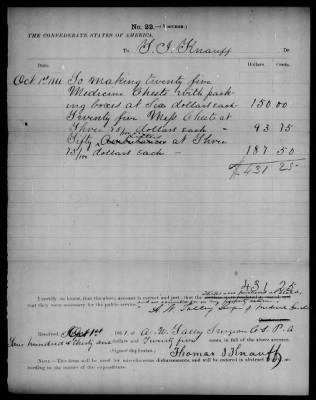 No. 22.—(VOUCHER.)
THE CONFEDERATE STATES OF AMERICA,
To T. I. Knauff Dr
Date. Dollars. Cents.
Oct 1st 1861 To making twenty five
Medicine Chests with pack
ing boxes at Six dollars each 150 00
Twenty five Mess Chest at
Three 75/100 dollars each " 93 75
Fifty at Three
75/100 dollars each - 187 50
$431 25
431 25
I certify, on honor, that the above account is correct and just; that the
that they were necessary for the public service,
A W Talley Surg
Received, Oct 1st 1861, of A. W. Talley Surgeon C. S. P. A.
Four hundred & thirty one Dollars and Twenty five cents, in full of the above account.
(Signed duplicates.)
Thomas I Knauff
NOTE.—This form will be used for miscellaneous disbursements, and will be entered in abstract
cording to the nature of the expenditure.